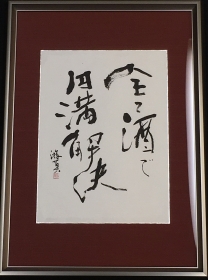 全て酒で
円満解決